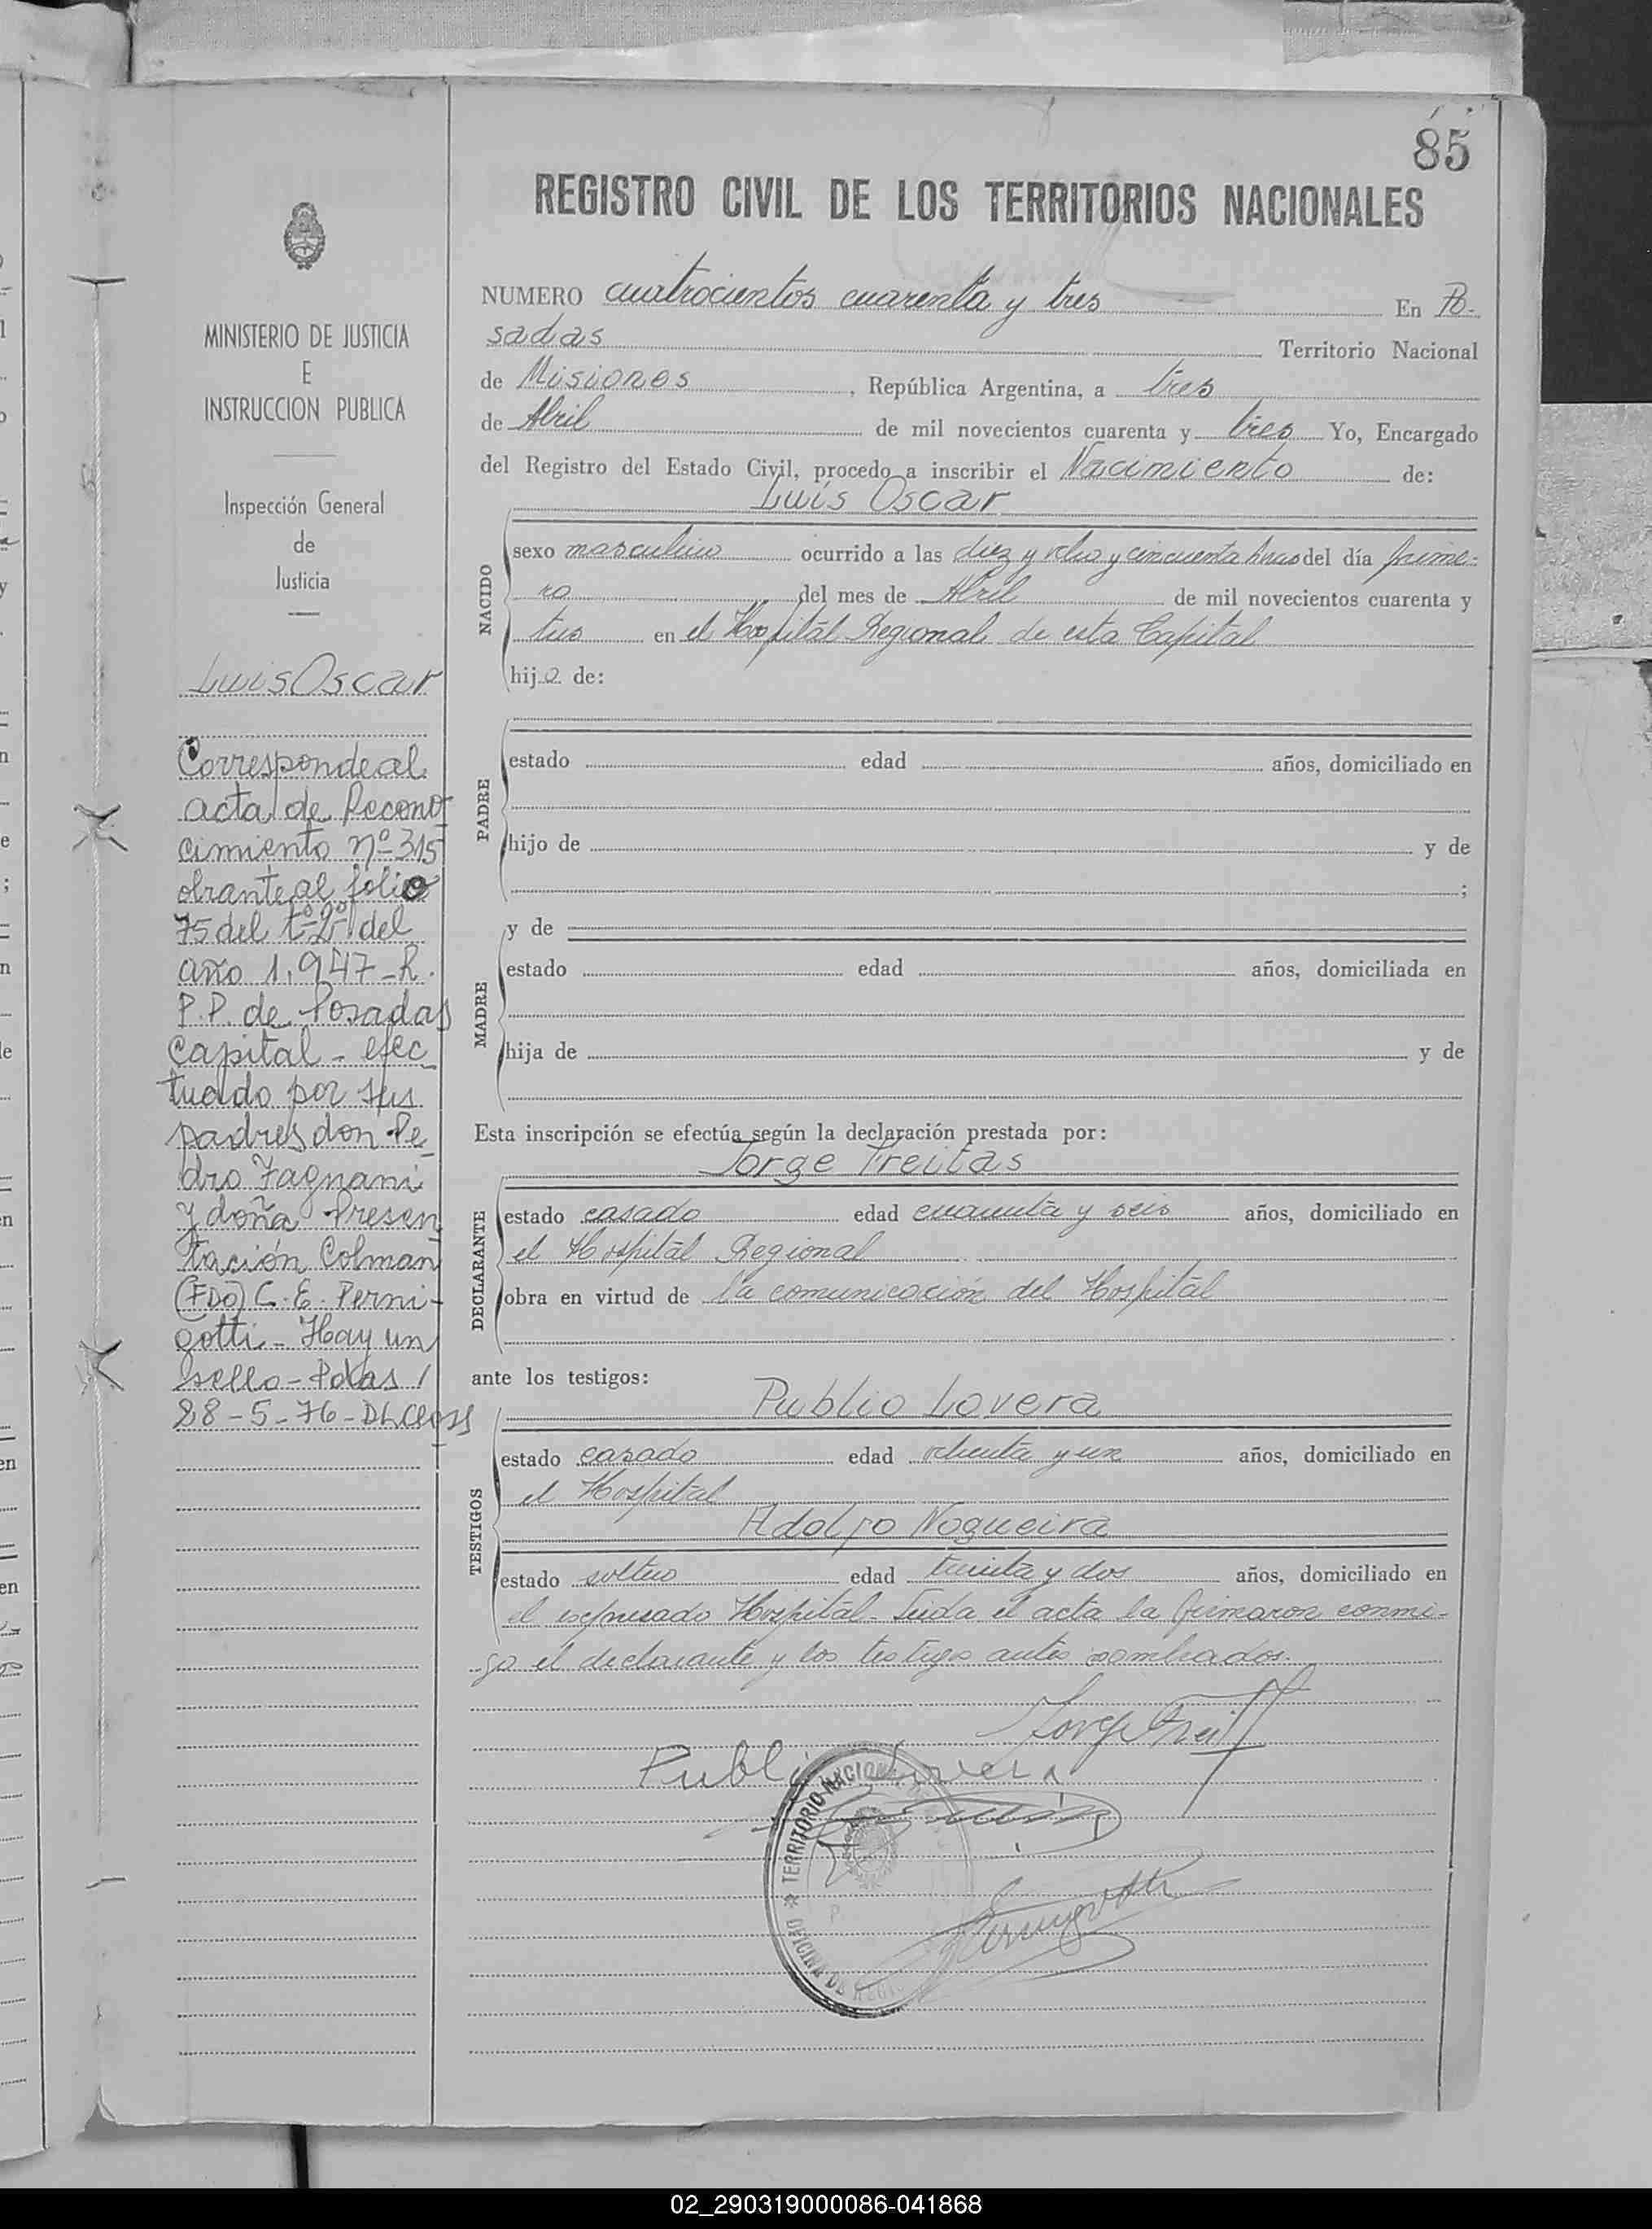 85
REGISTRO CIVIL DE LOS TERRITORIOS NACIONALES
MINISTERIO DE JUSTICIA
E
INSTRUCCION PUBLICA
Inspección General
de
Justicia
Luis Oscar
Corresponde al
acta de Recono
cimiento nº 315
obrante al folio
75 del tº 2º del
año 1.947 - R.
P.P. de Posadas
Capital - efec
tuado por sus
padres don Pe
dro Fagnani
y doña Presen
tación Colman
(FDO) C. E. Perni-
gotti - Hay un
sello - Pdas /
28-5-76 -
NUMERO cuatrocientos cuarenta y tres En Po-
sadas Territorio Nacional
de Misiones, República Argentina, a tres
de Abril de mil novecientos cuarenta y tres Yo, Encargado
del Registro del Estado Civil, procedo a inscribir el Nacimiento de:
Luis Oscar
NACIDO
sexo masculino ocurrido a las diez y ocho y cincuenta horas del día prime-
ro del mes de Abril de mil novecientos cuarenta y
tres en el Hospital Regional de esta Capital
hijo de:
PADRE
estado edad años, domiciliado en
hijo de y de
;
y de
MADRE
estado edad años, domiciliada en
hija de y de
Esta inscripción se efectúa según la declaración prestada por:
Jorge Freitas
DECLARANTE
estado casado edad cuarenta y seis años, domiciliado en
el Hospital Regional
obra en virtud de la comunicación del Hospital
ante los testigos:
Publio Lovera
TESTIGOS
estado casado edad ochenta y un años, domiciliado en
el Hospital
Adolfo Nogueira
estado soltero edad treinta y dos años, domiciliado en
el expresado Hospital - Leida el acta la firmaron conmi-
go el declarante y los testigos antes nombrados.
Jorge Freit
Publio Lovera
TERRITORIO NACIONAL
OFICINA DE REGI
02_290319000086-041868